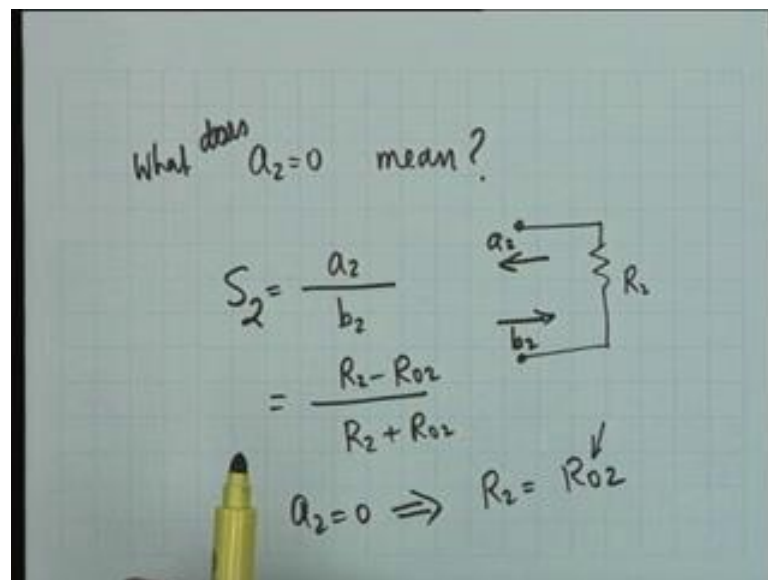 What does a₂=0 mean?
S₂ = a₂ / b₂
a₂
R₂
b₂
= R₂ - R02 / R₂ + R02
a₂=0 ⇒ R₂ = R02